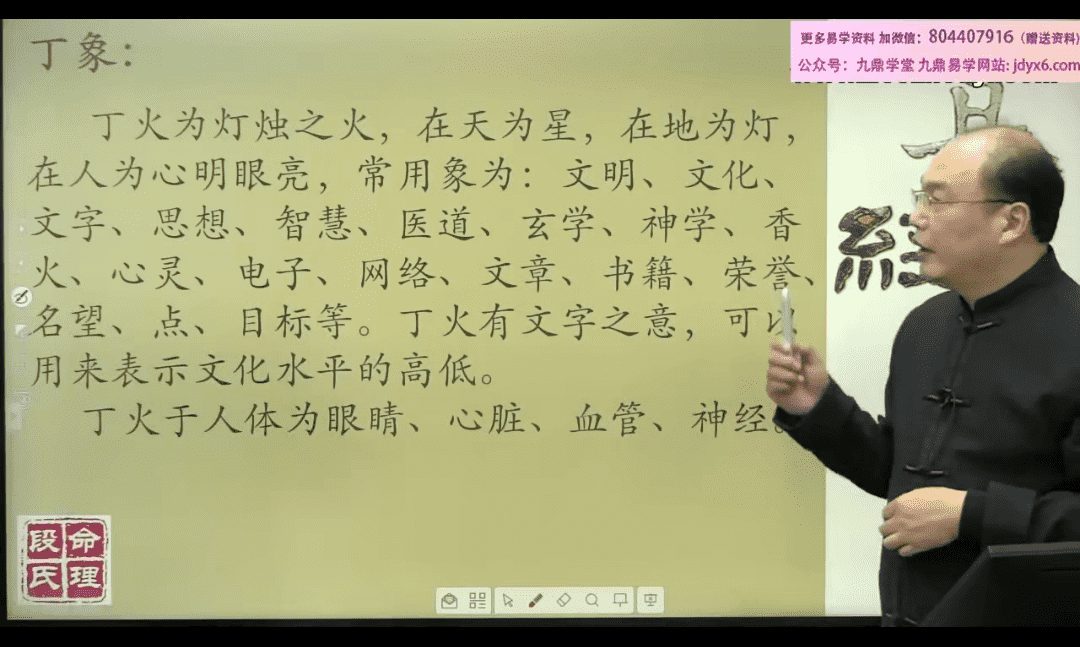 丁象：
更多易学资料 加微信：804407916（赠送资料）
公众号：九鼎学堂 九鼎易学网站: jdyx6.com
丁火为灯烛之火，在天为星，在地为灯，
在人为心明眼亮，常用象为：文明、文化、
文字、思想、智慧、医道、玄学、神学、香
火、心灵、电子、网络、文章、书籍、荣誉、
名望、点、目标等。丁火有文字之意，可以
用来表示文化水平的高低。
丁火于人体为眼睛、心脏、血管、神经。
段命
氏理